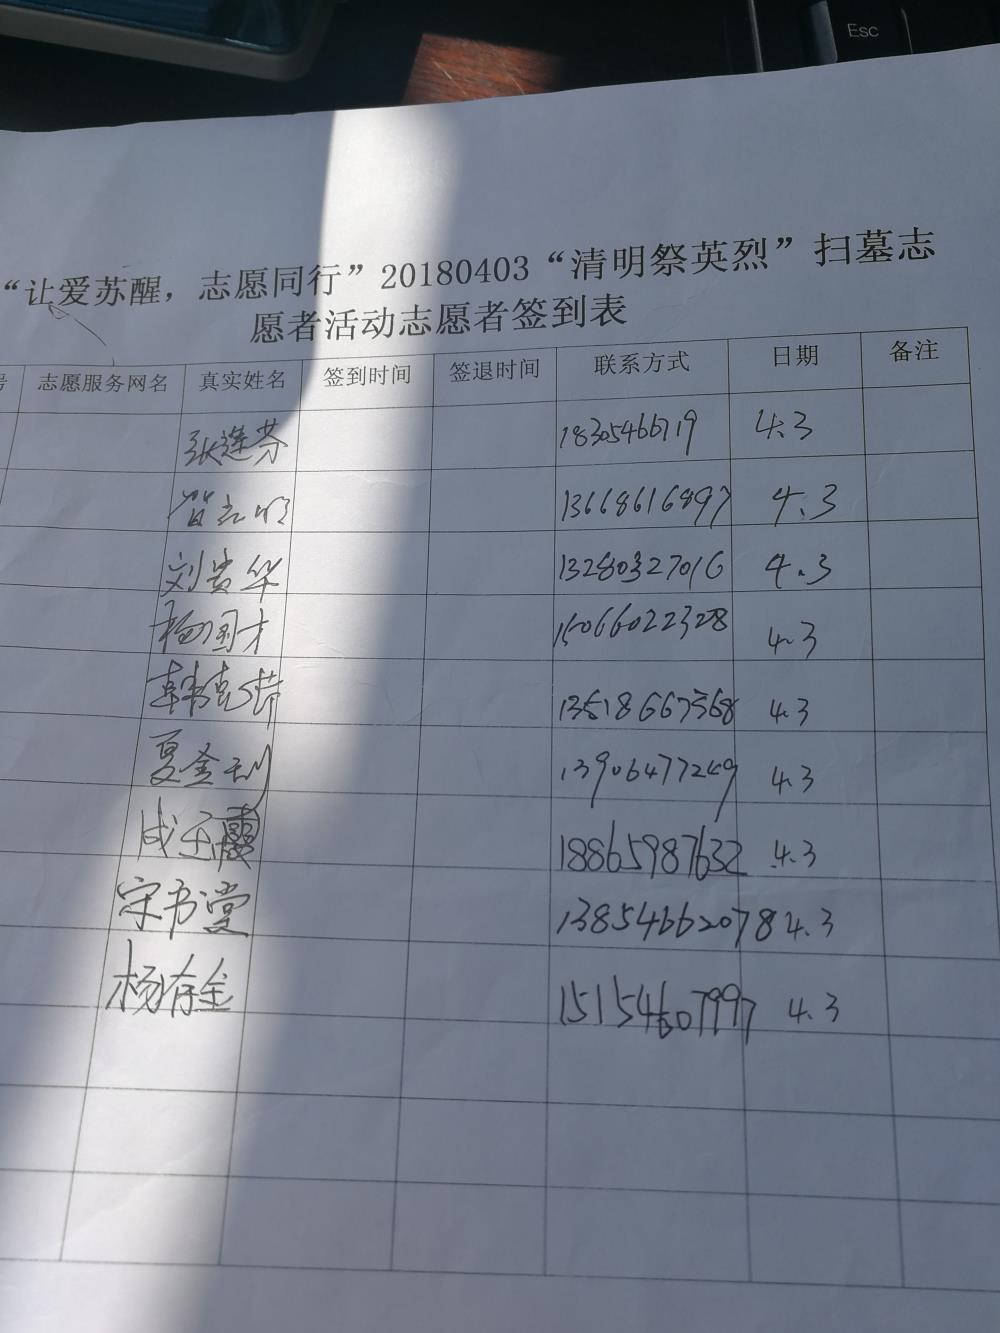 Esc
“让爱苏醒，志愿同行”20180403“清明祭英烈”扫墓志
愿者活动志愿者签到表
号 志愿服务网名 真实姓名 签到时间 签退时间 联系方式 日期 备注
张莲芬 18305466719 4.3
贺志明 13668616897 4.3
刘贵华 13280327016 4.3
杨国才 15066022328 4.3
韩克 13518667568 4.3
夏金 13906477249 4.3
成玉霞 18865987632 4.3
宋书堂 13854662078 4.3
杨存金 15154607997 4.3